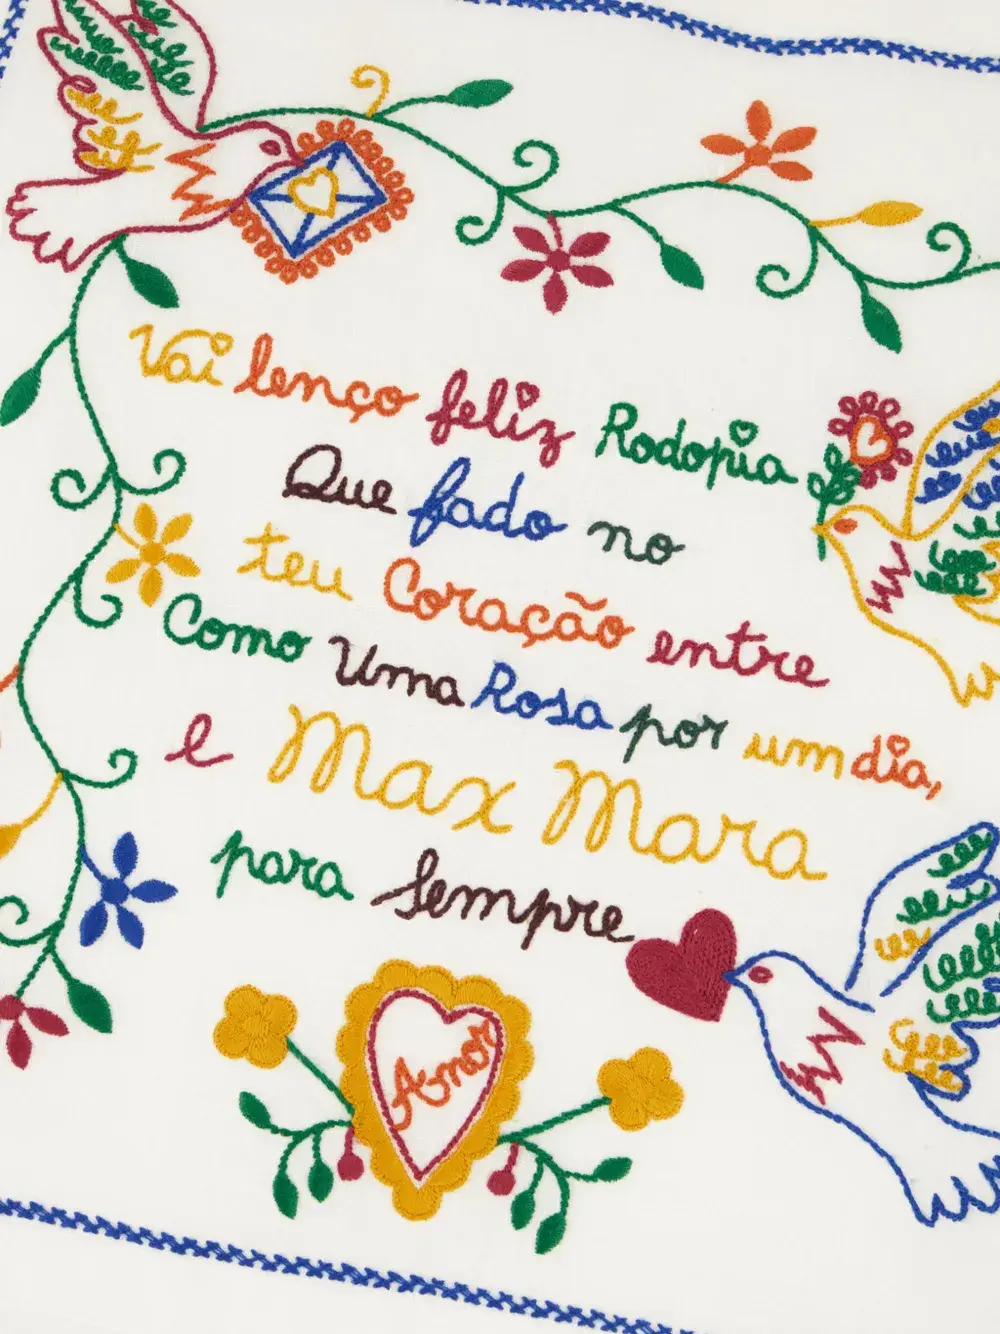 Vai lenço feliz Rodopia
Que fado no
teu Coração entre
Como Uma Rosa por um dia,
e Max Mara
para Sempre
Amor